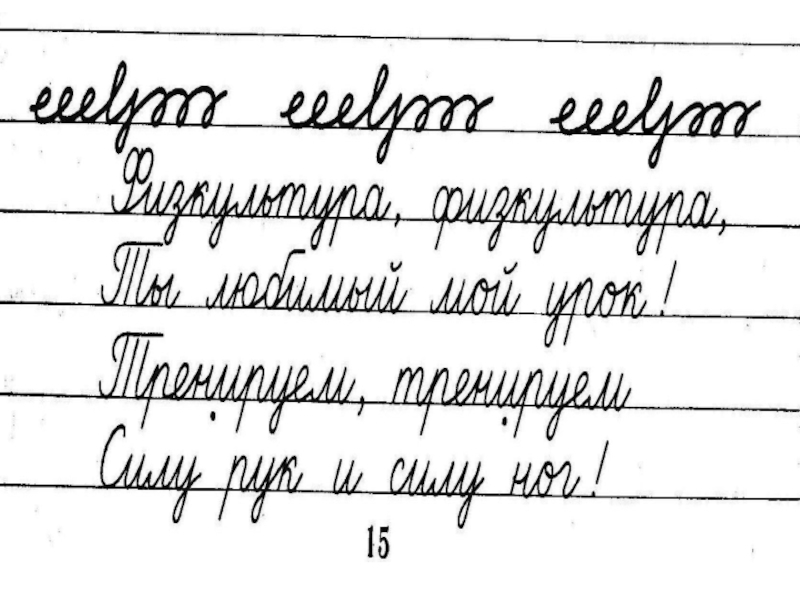 Физкультура, физкультура,
Ты любимый мой урок!
Тренируем, тренируем
Силу рук и силу ног!
15